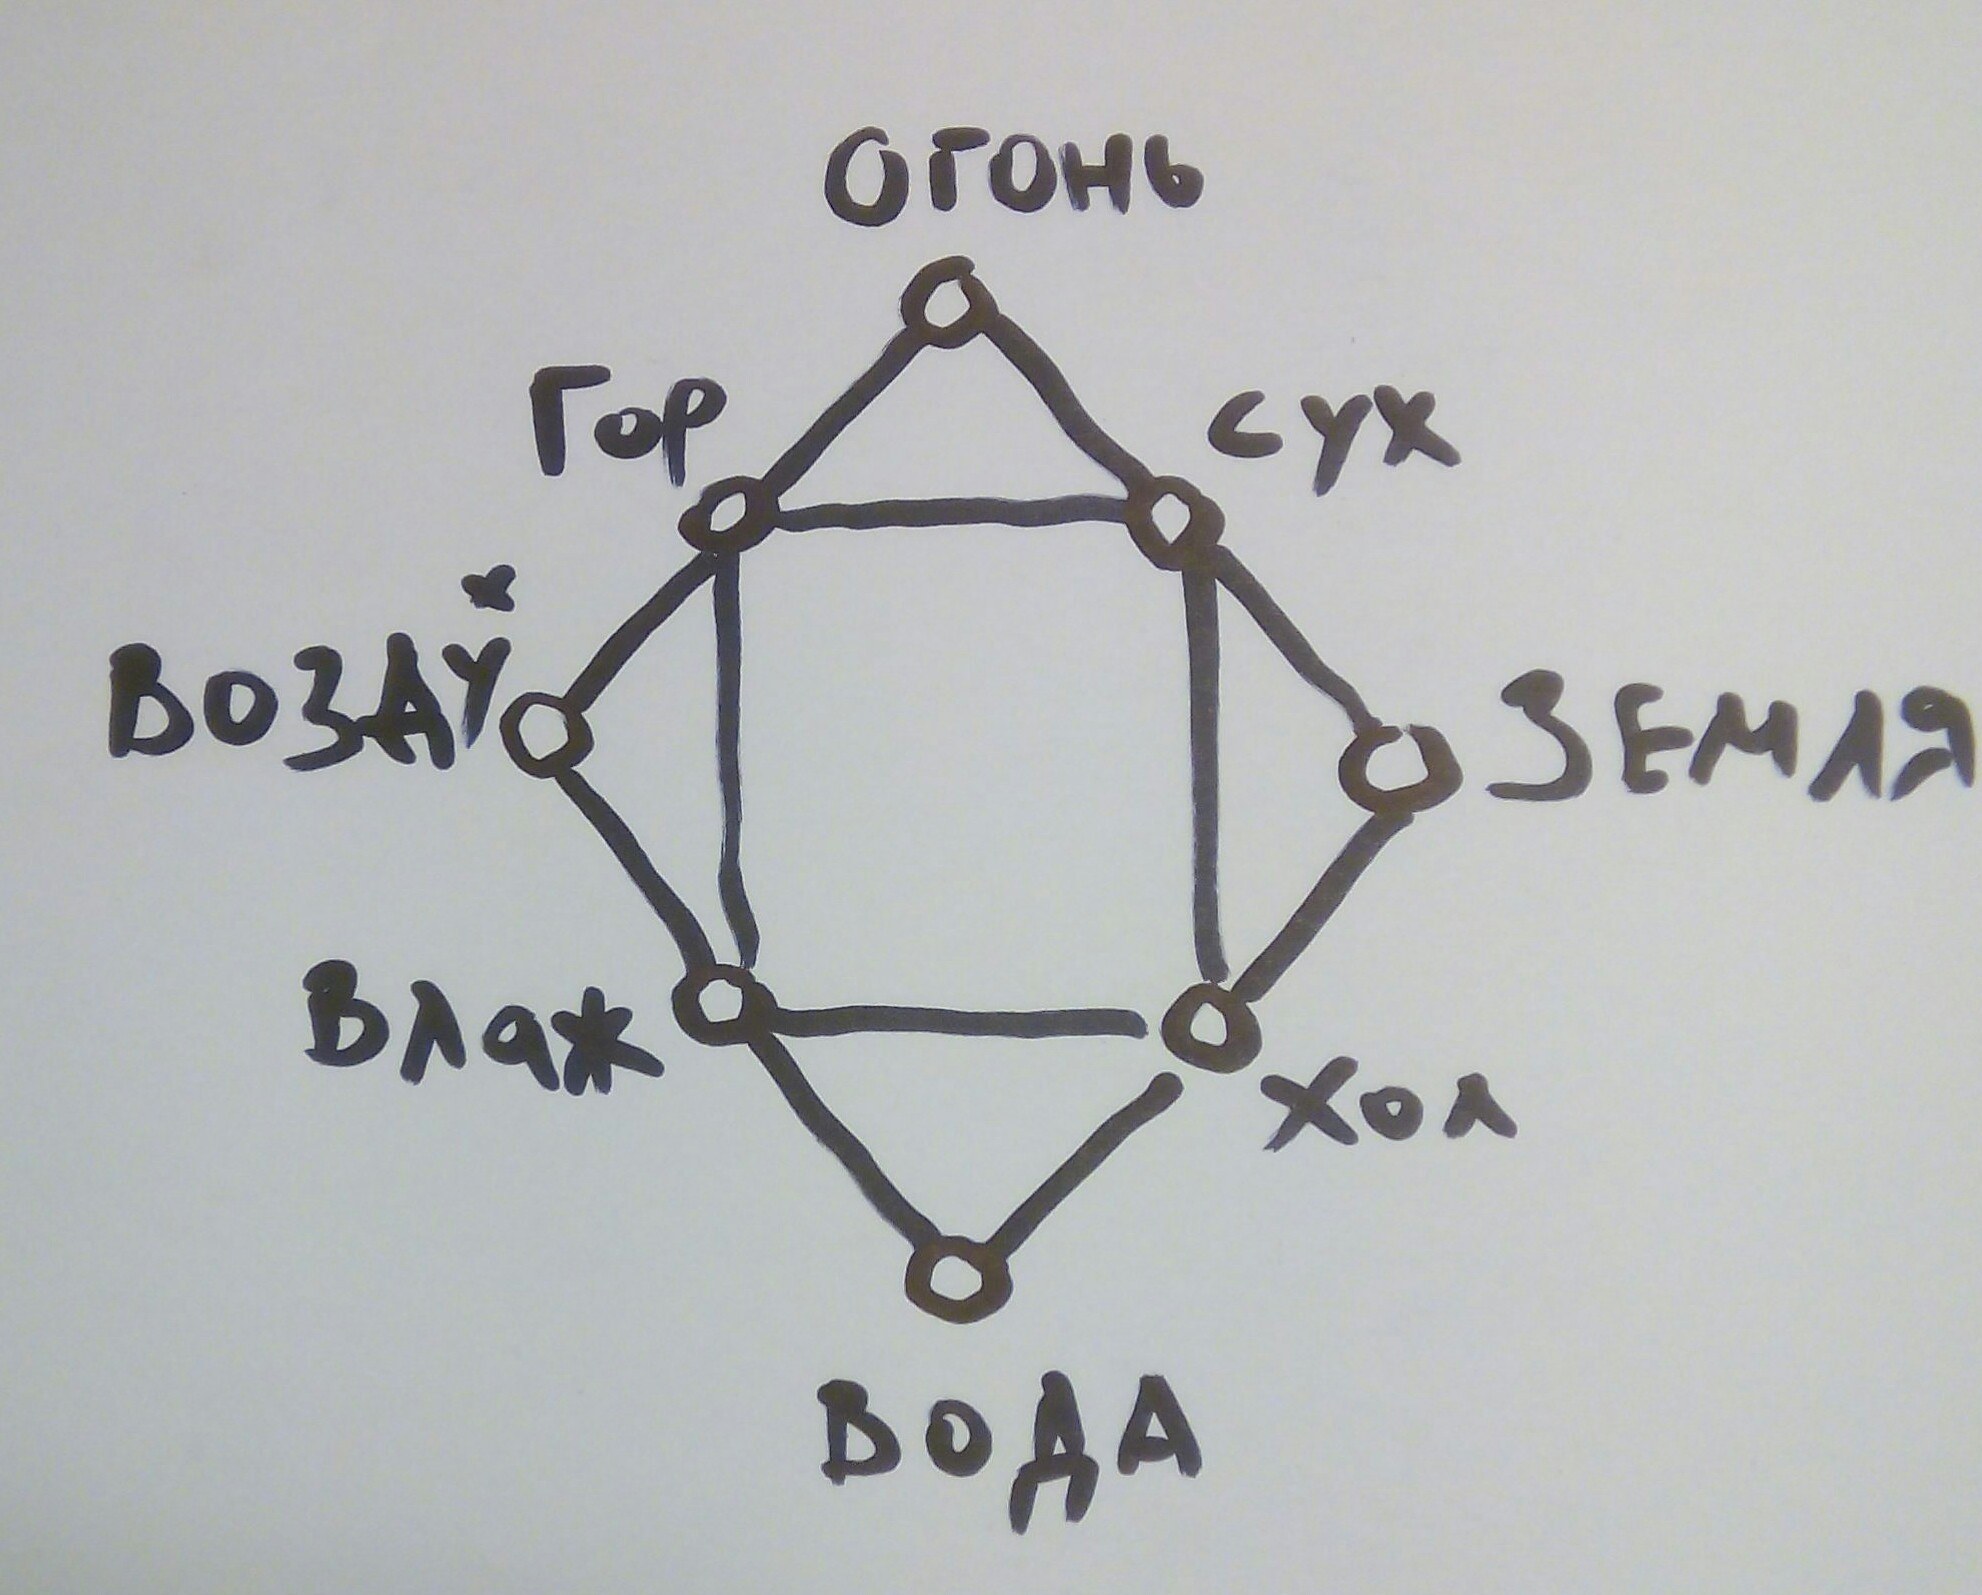 ОГОНЬ
Гор
сух
ВОЗДУх
ЗЕМЛЯ
Влаж
Хол
ВОДА